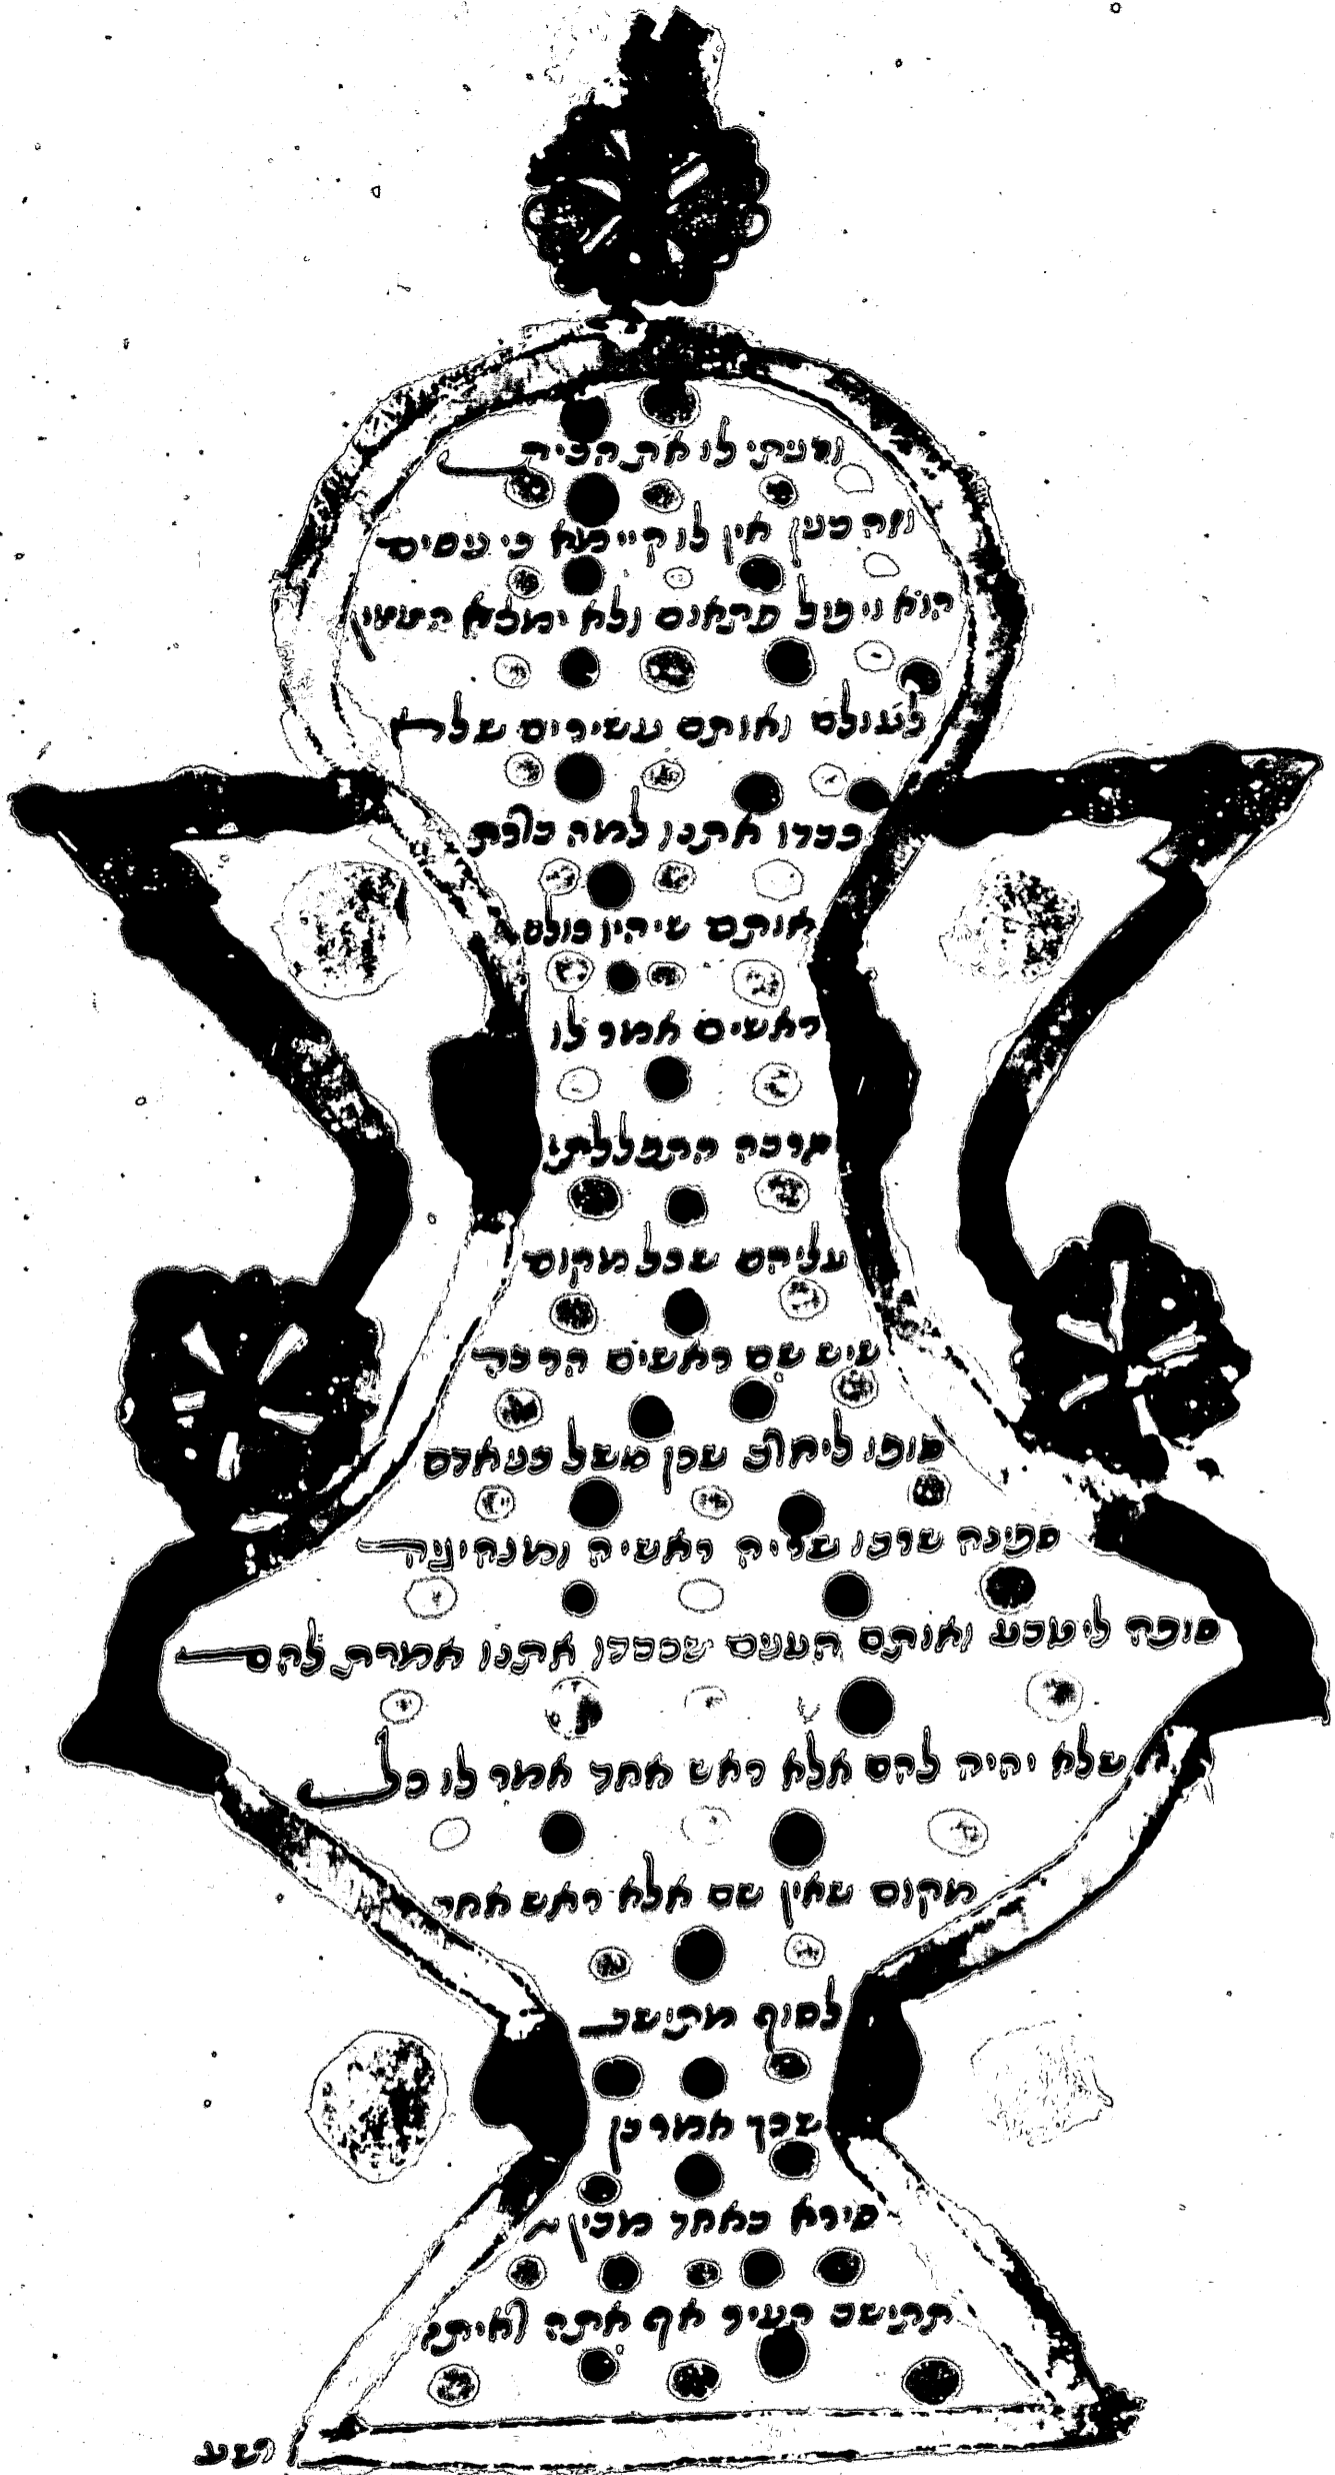 ורציתי לו את הבית
וזה בנין אין לו קיימא כי ניסים
הוא ויפול פתאום ולא ימלא השעון
לעולם ואותם עשירים שלא
כבדו אתנו למה ברכת
אותם שיהיו כולם
ראשים אמר לו
התפללתי
עליהם שכל מקום
שיש שם ראשים הרבה
סופו ליחרב שכן משל בני אדם
ספינה שרבו שריה ראשיה ומנהיגיה
סופה ליטבע ואותם הענים שכבדו אתנו אמרת להם
שלא יהיה להם אלא ראש אחד אמר לו כל
מקום שאין שם אלא ראש אחד
לסוף מתישב
שכך אמר בן
סירא באחד מבין
תתישב העיר אף אתה ראית
רשע